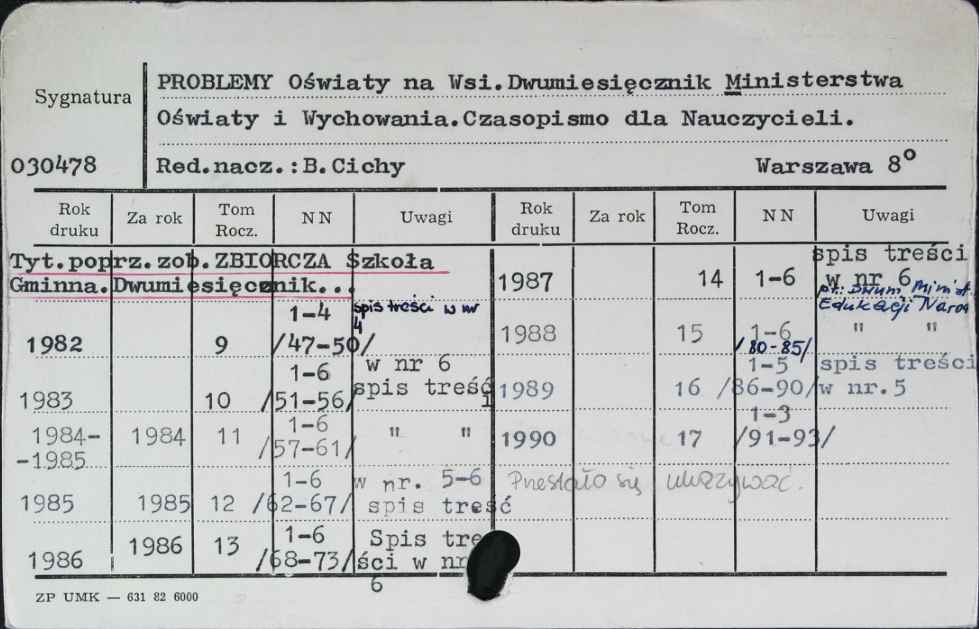 Sygnatura
PROBLEMY Oświaty na Wsi.Dwumiesięcznik Ministerstwa
Oświaty i Wychowania.Czasopismo dla Nauczycieli.
030478 Red.nacz.:B.Cichy Warszawa 8°
Rok druku Za rok Tom Rocz. NN Uwagi Rok druku Za rok Tom Rocz. NN Uwagi
Tyt.poprz.zob.ZBIORCZA Szkoła
Gminna.Dwumiesięcznik...
1982 9 1-4 /47-50/ spis treści w nr 4
1983 10 1-6 /51-56/ w nr 6 spis treści
1984-
-1985 1984 11 1-6 /57-61/ " "
1985 1985 12 1-6 /62-67/ w nr. 5-6 spis treść
1986 1986 13 1-6 /68-73/ Spis treści w nr 6
1987 14 1-6 spis treści w nr 6
Edukacji Narod
1988 15 1-6 /80-85/ " "
1989 16 1-5 /86-90/ spis treści w nr.5
1990 17 1-3 /91-93/
Przestało się ukazywać.
ZP UMK — 631 82 6000